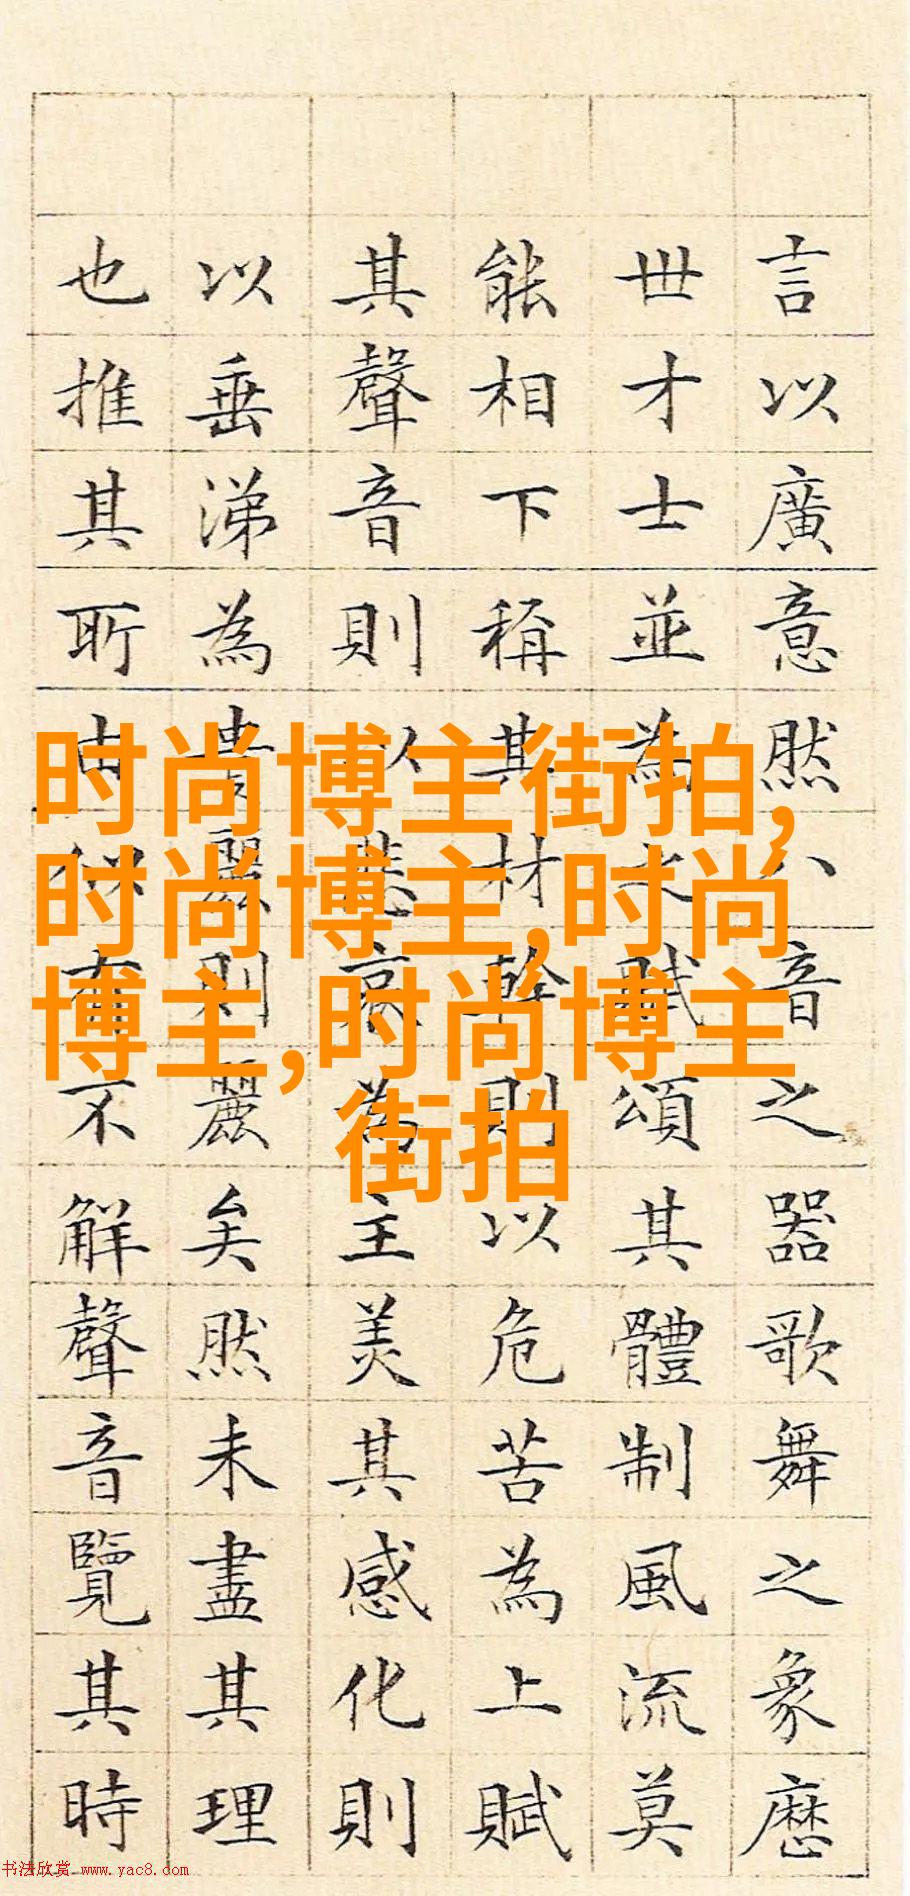 言以廣意然八音之器歌舞之象歷
世才士並為之賦頌其體制風流莫
能相下稱其材幹則以危苦為上賦
其聲音則以悲哀為主美其感化則
以垂涕為貴麗則麗矣然未盡其理
也推其所由似不解聲音覽其時
时尚博主街拍,
时尚博主,时尚
博主,时尚博主
街拍
书法欣赏 www.yac8.com